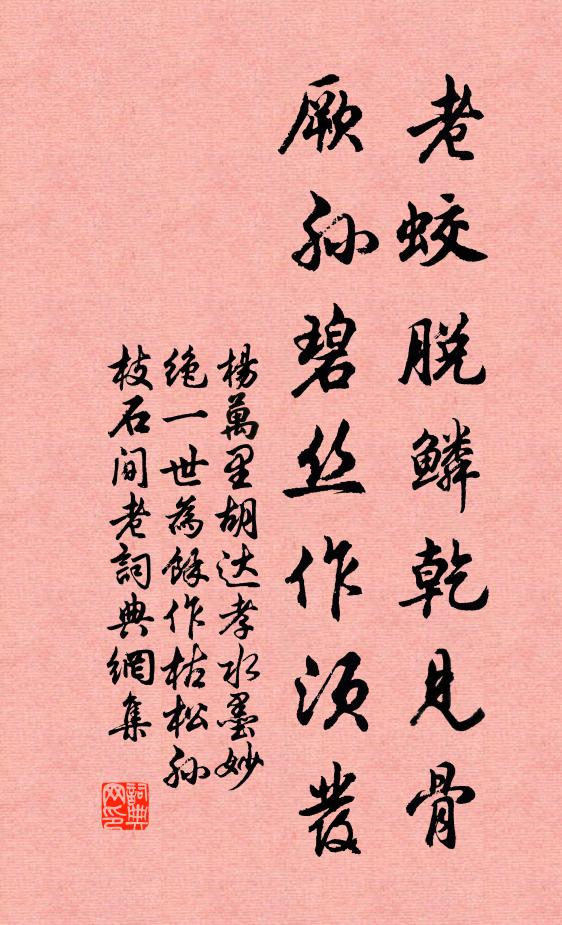 老蛟脱鳞乾见骨
厥孙碧丝作须发
楊萬里胡达孝水墨妙
绝一世為馀作枯松孙
枝石间老詞典網集
詞典网印